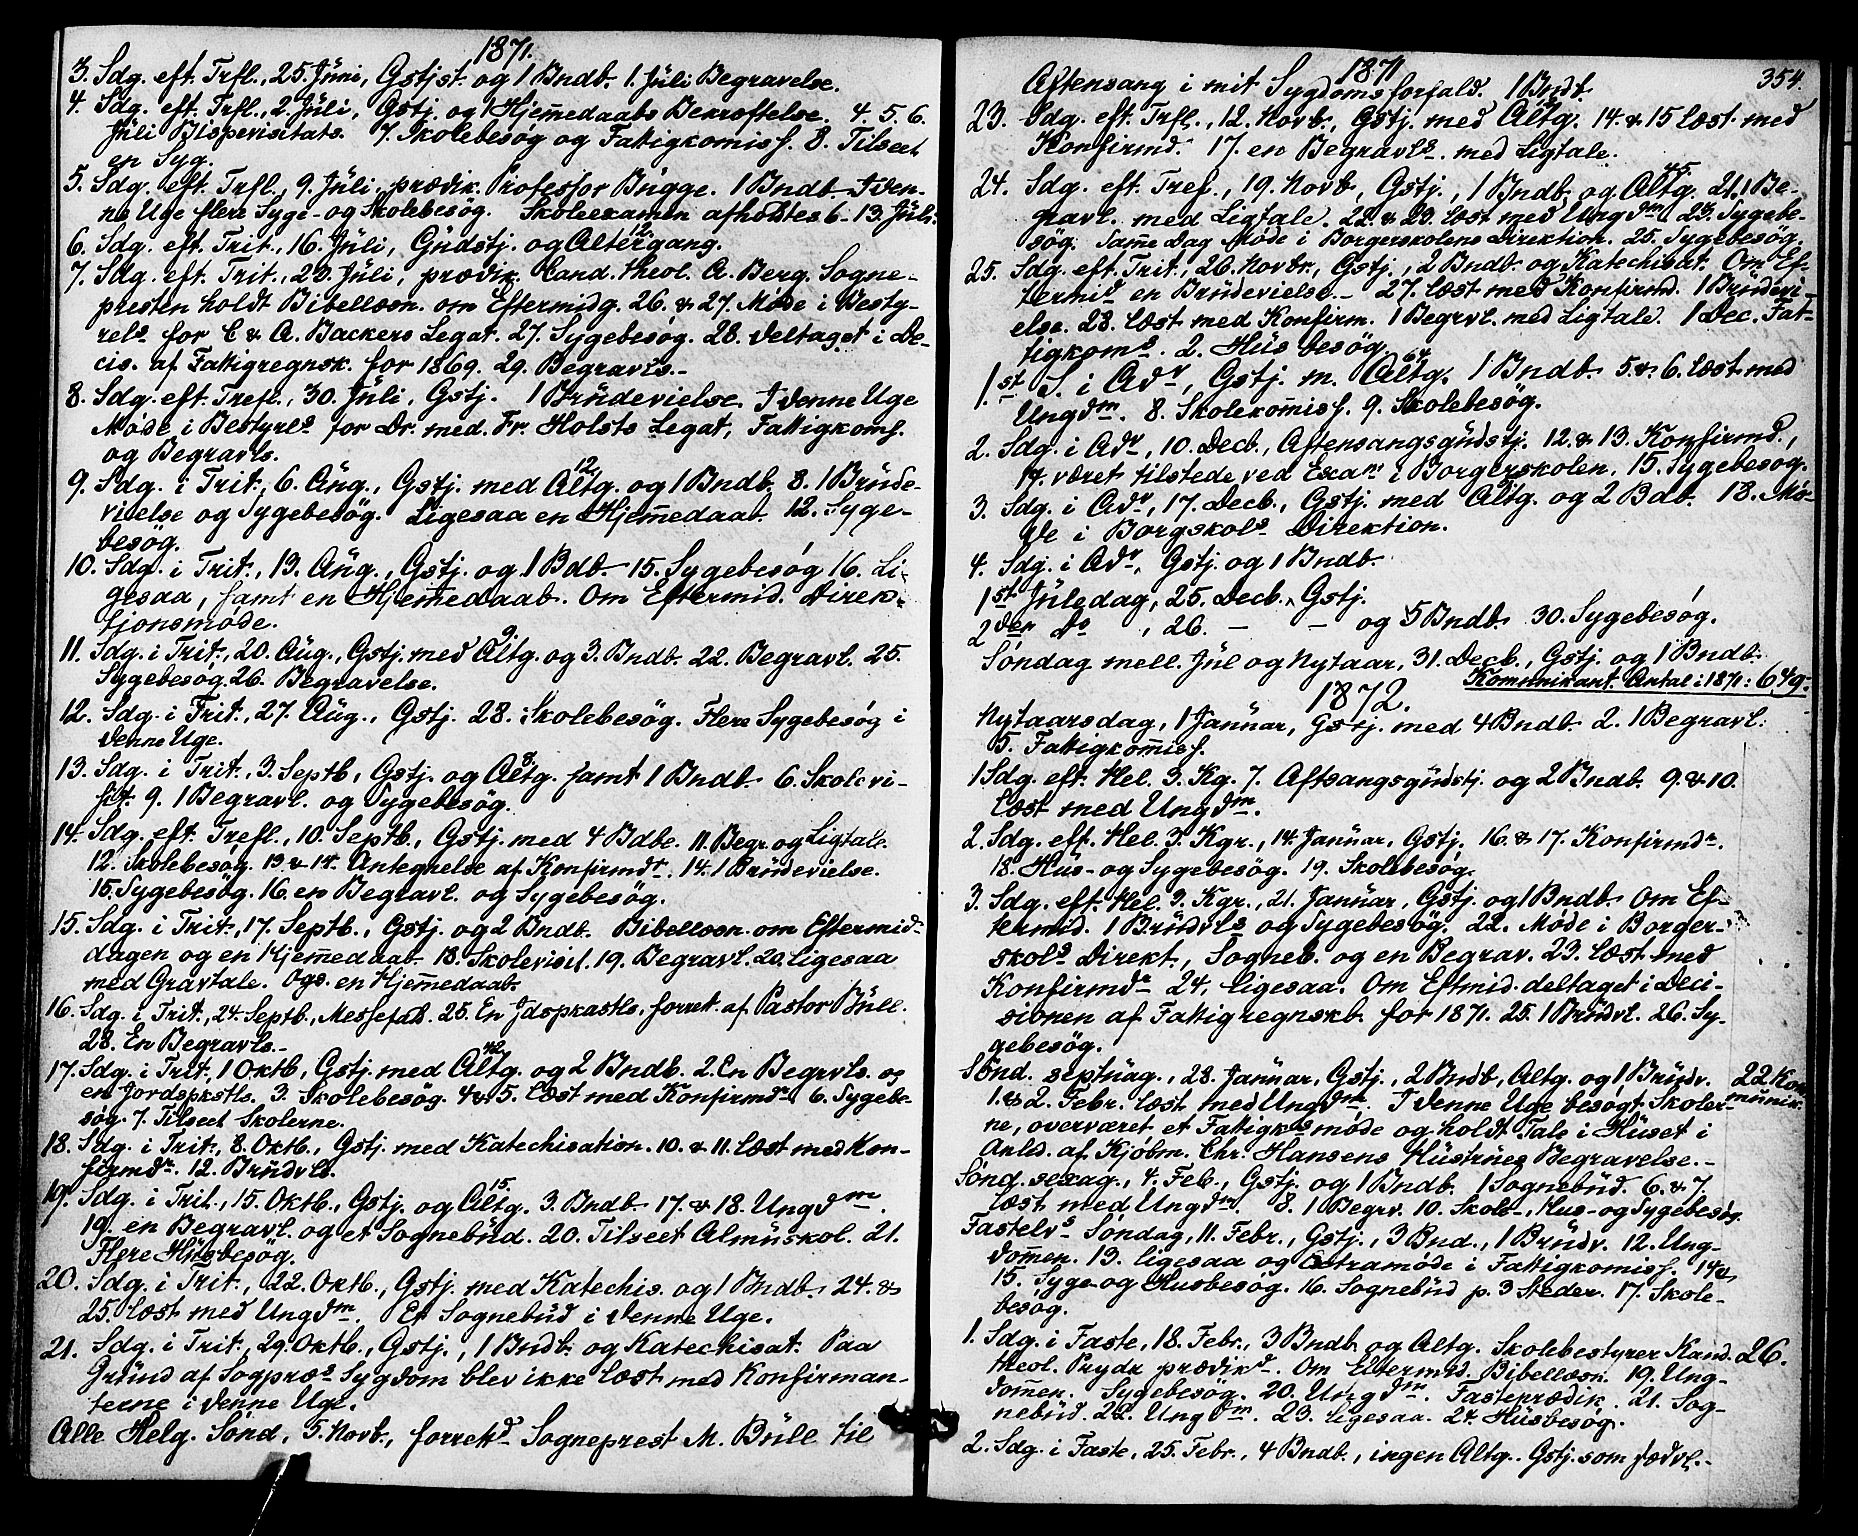 1871.
3. Sdg. eft. Trfl., 25. Jüni, Gstjst. og 1 Bndb. 1. Jüli Begravelse.
4. Sdg. eft. Trfl., 2. Jüli, Gstj. og 1 Hjem̄edaabs Bekræftelse. 4. 5. 6.
Jüli Bispevisitats. 7. Skolebesøg og Fattigkomiss. 8. Tilseet
en Syg.
5. Sdg. eft. Trfl., 9. Jüli, prædik. Professor Bügge. 1 Bndb. I den-
ne Uge flere Syge- og Skolebesøg. Skoleexamen afholdtes 6-13. Jüli.
6. Sdg. eft. Trit., 16. Jüli, Güdstj. og Altergang. 12
7. Sdg. eft. Trit., 23. Jüli, prædik. Cand. theol. A. Berg. Sogne-
presten holdt Bibellæsn. om Eftermidg. 26. & 27. Møde i Besty-
rels for C & A. Backers Legat. 27. Sygebesøg. 28. deltaget i De-
cis. af Fattigregnsk. for 1869. 29. Begravls.-
8. Sdg. eft. Trefl., 30. Jüli, Gstj. 1 Brüdevielse. I denne Uge
Møde i Bestyrels for Dr. med. Fr. Holsts Legat, Fattigkoms.
og Begravls.
9. Sdg. i Trit., 6. Aüg., Gstj. med Altg. 12 og 1 Bndb. 8. 1 Brüde-
vielse og Sygebesøg. Ligesaa en Hjem̄edaab. 12. Syge-
besøg.
10. Sdg. i Trit., 13. Aüg., Gstj. og 1 Bdb. 15. Sygebesøg 16. Li-
gesaa, samt en Hjem̄edaab. Om Eftermid. Direk-
tjonsmøde.
11. Sdg. i Trit., 20. Aüg., Gstj. med Altg. 9 og 3. Bndb. 22. Begravl. 25.
Sygebesøg. 26. Begravelse.
12. Sdg. i Trit., 27. Aüg., Gstj. 28. Skolebesøg. Flere Sygebesøg i
denne Uge.
13. Sdg. i Trit., 3. Septb., Gstj. og Altg. 8 samt 1 Bndb. 6. Skolevi-
sit. 9. 1 Begravl. og Sygebesøg.
14. Sdg. eft. Trefl., 10. Septb., Gstj. med 4 Bdbe. 11. Begr. og Ligtale.
12. Skolebesøg. 13 & 14. Antegnelse af Konfirmdt. 14. 1 Brüdevielse.
15. Sygebesøg. 16. en Begravl. og Sygebesøg.
15. Sdg. i Trit., 17. Septb., Gstj. og 2 Bndb. Bibellæsn. om Eftermid-
dagen og en Hjem̄edaab. 18. Skolevisit. 19. Begravl. 20. Ligesaa
med Gravtale. Ogs. en Hjem̄edaab.
16. Sdg. i Trit., 24. Septb., Messefad. 25. En Jdspkastls. forret. af Pastor Büll.
28. En Begravls.-
17. Sdg. i Trit., 1 Oktb., Gstj. med Altg. 42 og 2 Bndb. 2. En Begrvls. og
en Jordspkstls. 3. Skolebesøg. 4 & 5. Læst med Konfirmd. 6. Sygebe-
søg. 7. Tilseet Skolerne.
18. Sdg. i Trit., 8. Oktb., Gstj. med Katechisation. 10. & 11. Læst med Kon-
firmd. 12. Brüdvls.
19. Sdg. i Trit., 15. Oktb., Gstj. og Altg. 15 3. Bndb. 17. & 18. Ungdm.
19. en Begravl. og et Sognebüd. 20. Tilseet Almüskol. 21.
Flere Hüsbesøg.
20. Sdg. i Trit., 22. Oktb., Gstj. med Katechis. og 1 Bndb. 24. &
25. læst med Ungdm. Et Sognebüd i denne Uge.
21. Sdg. i Trit., 29. Oktb., Gstj., 1 Bndb. og Katechisat. Paa
Gründ af Sogpræs Sygdom blev ikke læst med Konfirman-
terne i denne Uge.
Alle Helg. Sønd., 5. Novb., forretd. Sogneprest M. Büll til
354.
1871
Aftensang i mit Sygdomsforfald. 1 Bndb.
23. Sdg. eft. Trfl., 12. Novb., Gstj. med Altg. 14. & 15 læst med
Konfirmd. 17. en Begravls. med Ligtale.
24. Sdg. eft. Tref., 19. Novb., Gstj., 1 Bndb. og Altg. 45 21. 1 Be-
gravl. med Ligtale. 22. & 23. læst med Ungdm. 23. Sygebe-
søg. Sam̄e Dag Møde i Borgerskolens Direktion. 25. Sygebesøg.
25. Sdg. eft. Trit., 26. Novbr., Gstj., 2 Bndb. og Katechisat. Om Ef-
termid en Brüdevielse.- 27. læst med Konfirmd. 1 Brüdevi-
else. 28. læst med Konfirm. 1 Begrvl. med Ligtale. 1 Dec. Fat-
tigkoms. 2. Hüsbesøg
1.st S. i Adv., Gstj. m. Altg. 64 1 Bndb. 5. & 6. læst med
Ungdm. 8. Skolekom̄iss. 9. Skolebesøg.
2. Sdg. i Adv., 10. Decb., Aftensangsgüdstj. 12. & 13. Konfirmd.,
14. været tilstede ved Exam i Borgerskolen. 15. Sygebesøg.
3. Sdg. i Adv., 17. Decb., Gstj. med Altg. og 2 Bdb. 18. Mø-
de i Borgskols Direktion.
4. Sdg. i Adv., Gstj. og 1 Bndb.
1st Jüledag, 25. Decb., Gstj.
2den do , 26. - - og 5 Bndb. 30. Sygebesøg.
Søndag mell. Jül og Nytaar, 31. Decb., Gstj. og 1 Bndb.
Kom̄unikant. Antal i 1871: 649.
1872.
Nytaarsdag, 1 Janüar, Gstj. med 4 Bndb. 2. 1 Begravl.
5. Fattigkom̄iss.
1 Sdg. eft. Hel. 3. Kg. 7. Aftsangsgüdstj. og 2 Bndb. 9. & 10.
læst med Ungdm.
2. Sdg. eft. Hel. 3. Kgr., 14. Janüar, Gstj. 16. & 17. Konfirmd.
18. Hüs- og Sygebesøg. 19. Skolebesøg.
3. Sdg. eft. Hel. 3. Kgr., 21. Janüar, Gstj. og 1 Bndb. Om Ef-
termid. 1 Brüdvls og Sygebesøg. 22. Møde i Borger-
skols Direkt., Sogneb. og en Begrav. 23. læst med
Konfirmd. 24. ligesaa. Om Eftmid. deltaget i Deci-
sionen af Fattigregnskb. for 1871. 25. 1 Brüdvl. 26. Sy-
gebesøg.
Sønd. septüag., 28. Janüar, Gstj., 2 Bndb, Altg. og 1 Brüdv. 22 Kom
münik.
1. & 2. Febr. læst med Ungdm. I denne Uge besøgt Skoler-
ne, overværet et Fattigks møde og holdt Tale i Hüset i
Anled. af Kjøbm. Chr. Hansens Hüstrües Begravelse.-
Sønd. sexag., 4. Feb., Gstj. og 1 Bndb. 1 Sognebüd. 6. & 7.
læst med Ungdm. 8. 1 Begrv. 10. Skole-, Hüs- og Sygebesøg.
Fastelvs Søndag, 11. Febr., Gstj., 3 Bnd., 1 Brüdv. 12. Ung-
dom̄en. 13. ligesaa og Extramøde i Fattigkomiss. 14de
15. Syge- og Hüsbesøg. 16. Sognebüd p. 3 Steder. 17. Skole-
besøg.
1. Sdg. i Faste, 18. Febr., 3 Bndb. og Altg. Skolebestyrer Kand. 26.
theol. Prydz prædikd. Om Eftermid. Bibellæsn. 19. Ung-
dom̄en. Sygebesøg. 20. Ungdm. Fasteprædik. 21. Sog-
nebüd. 22. Ungdm. 23. Ligesaa. 24. Hüsbesøg.
2. Sdg. i Faste, 25. Febr., 4 Bndb., ingen Altg. Gstj. som sædvl.-